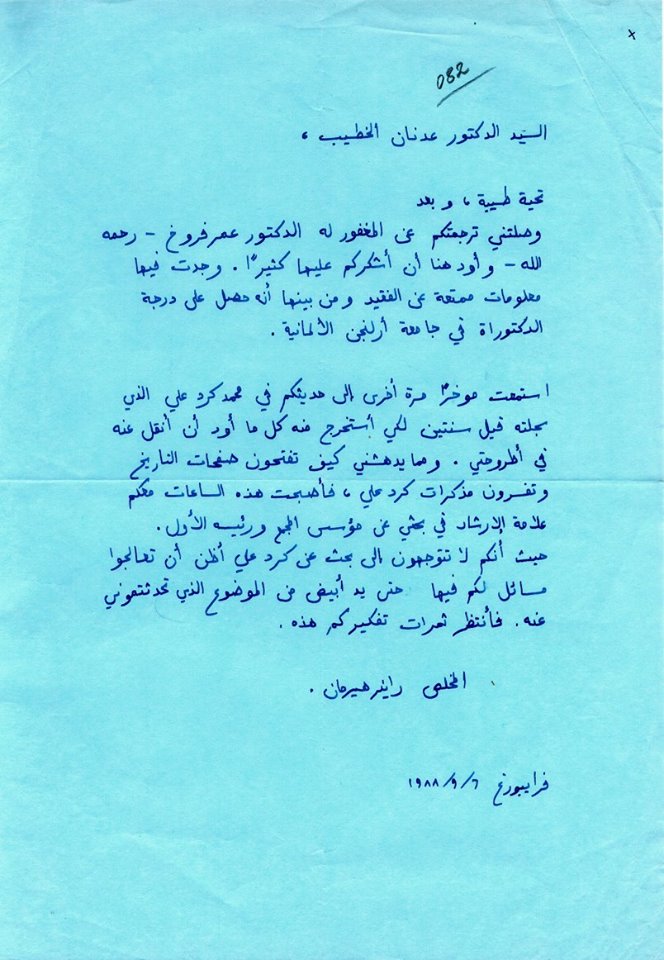 x
082
السيد الدكتور عدنان الخطيب ،
تحية طيبة ، و بعد
وصلتني ترجمتكم عن المغفور له الدكتور عمر فروخ - رحمه
الله - وأود هنا أن أشكركم عليها كثيرًا . وجدت فيها
معلومات ممتعة عن الفقيد ومن بينها أنه حصل على درجة
الدكتوراة في جامعة أرلنجن الألمانية .
استمعت موخرًا مرة أخرى إلى حديثكم في محمد كرد علي الذي
سجلته قبل سنتين لكي أستخرج منه كل ما أود أن أنقل عنه
في أطروحتي . ومما يدهشني كيف تفتحون صفحات التاريخ
وتفسرون مذكرات كرد علي ، فأصبحت هذه الساعات معكم
علامة الارشاد في بحثي عن مؤسس المجمع ورئيسه الأول .
حيث أنكم لا تتوجهون إلى بحث عن كرد علي أظن أن تعالجوا
مسائل لكم فيها حتى يد أبيض من الموضوع الذي تحدثتموني
عنه . فأنتظر ثمرات تفكيركم هذه .
المخلص راينر هيرمان .
فرايبورغ ٦/٩/١٩٨٨